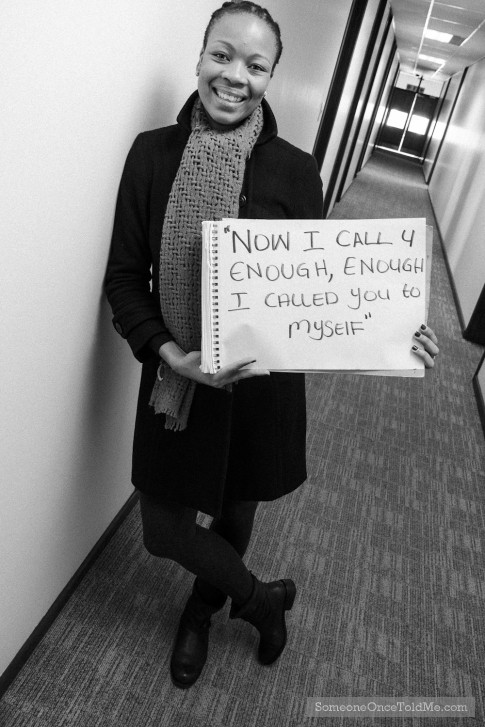 "NOW I CALL 4
ENOUGH, ENOUGH
I CALLED YOU to
MYSELF"
SomeoneOnceToldMe.com